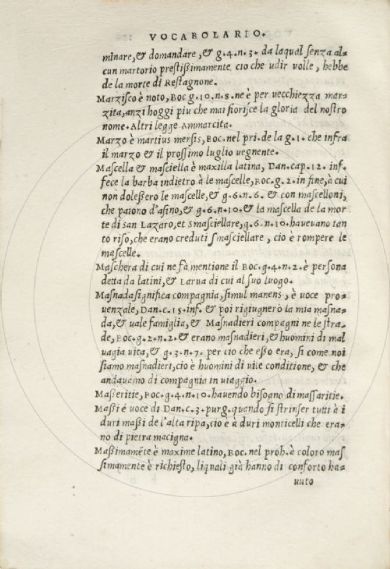 VOCABOLARIO.
minare, & domandare, & g.4.n.3. da laqual senza al
cun martorio prestissimamente cio che udir volle, hebbe
de la morte di Restagnone.
Marzisco è noto, BOC g.10.n.8. ne è per vecchiezza mar
zita, anzi hoggi piu che mai fiorisce la gloria del nostro
nome. Altri legge Ammarcita.
Marzo è martius mensis, BOC. nel pri. de la g.1. che infra
il marzo & il prossimo luglio vegnente.
Mascella & masciella è maxilla latina, DAN. cap.12. inf.
fece la barba indietro à le mascelle, BOC. g.2. in fine, à cui
non dolessero le mascelle, & g.6.n.6. & con mascelloni,
che paiono d'asino, & g.6.n.10. & la mascella de la mor
te di san Lazaro, et Smascellare, g.6.n.10. havevano tan
to riso, che erano creduti smasciellare, cio è rompere le
mascelle.
Maschera di cui ne fa mentione il BOC. g.4.n.2. è persona
detta da latini, & Larua di cui al suo luogo.
Masnada significa compagnia, simul manens, è voce pro
uenzale, DAN. c.15. inf. & poi rigiugnerò la mia masna
da, & uale famiglia, & Masnadieri compagni ne le stra
de, BOC. g.2.n.2. & erano masnadieri, & huomini di mal
uagia uita, & g.3.n.7. per cio che esso era, si come noi
siamo masnadieri, cio è huomini di uile conditione, & che
andauamo di compagnia in uiaggio.
Masseritie, BOC. g.4.n.10. hauendo bisogno di massaritie.
Massi é voce di DAN. c.3. purg. quando si strinser tutti à i
duri massi de l'alta ripa, cio e à duri monticelli che era-
no di pietra macigna.
Massimamēte è maxime latino, BOC. nel proh. à coloro mas
simamente è richiesto, liquali già hanno di conforto ha-
uuto